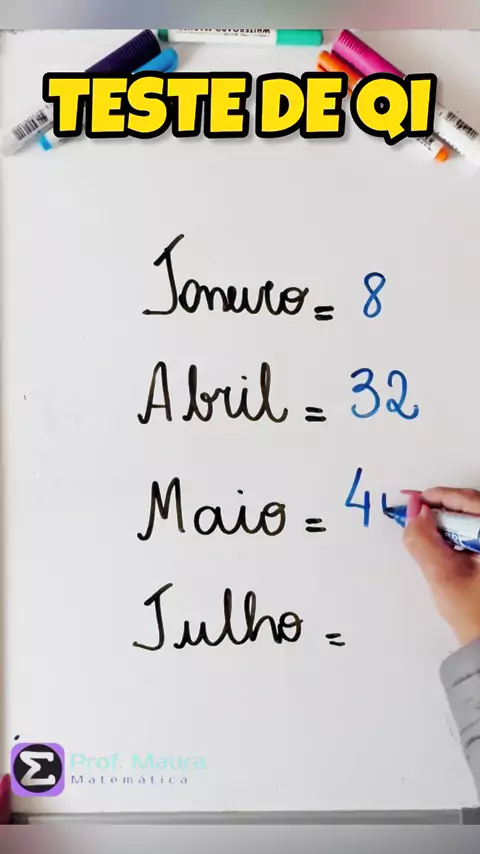 TESTE DE QI
Janeiro = 8
Abril = 32
Maio = 4
Julho =
Prof. Maura
Matemática